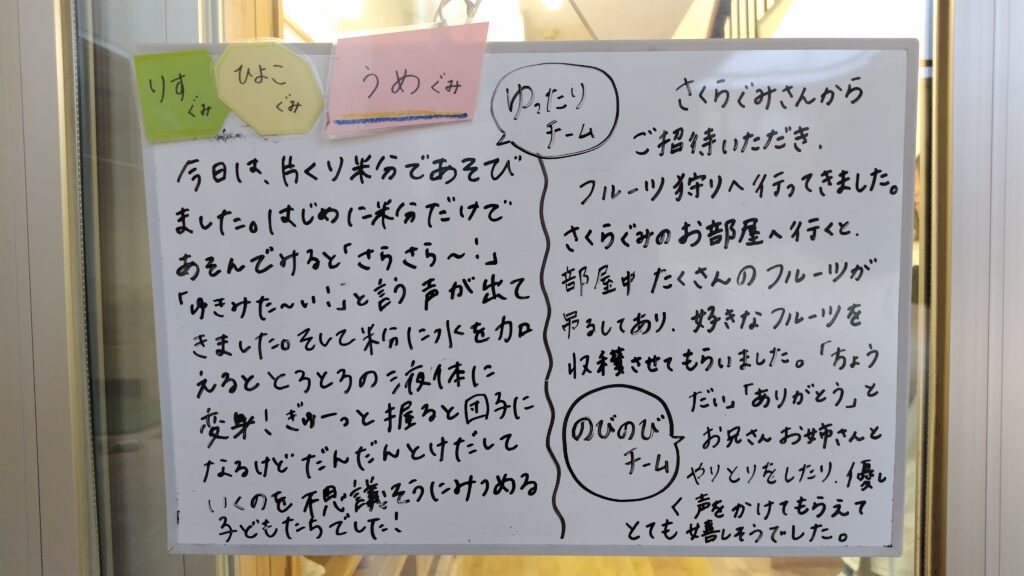 りすぐみ
ひよこぐみ
うめぐみ
ゆったり
チーム
今日は、片くり粉であそび
ました。はじめに粉だけで
あそんでみると「さらさら〜!」
「ゆきみた〜い!」と言う声が出て
きました。そして粉に水を加
えるととろとろの液体に
変身!ぎゅーっと握ると団子に
なるけどだんだんとけだして
いくのを不思議そうにみつめる
子どもたちでした!
さくらぐみさんから
ご招待いただき、
フルーツ狩りへ行ってきました。
さくらぐみのお部屋へ行くと、
部屋中たくさんのフルーツが
吊るしてあり、好きなフルーツを
収穫させてもらいました。「ちょう
だい」「ありがとう」と
お兄さんお姉さんと
やりとりをしたり、優し
く声をかけてもらえて
とても嬉しそうでした。
のびのび
チーム